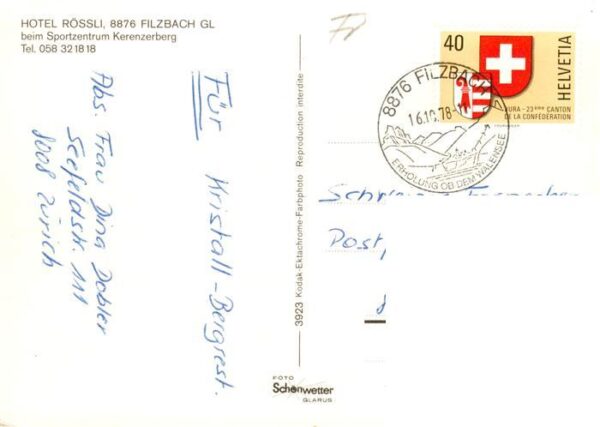 HOTEL RÖSSLI, 8876 FILZBACH GL
beim Sportzentrum Kerenzerberg
Tel. 058 32 18 18
Abs. Frau Dina Dobler
Seefeldstr. 111
8008 Zürich
Für Kristall-Bergrest.
3923 Kodak-Ektachrome-Farbphoto Reproduction interdite
FOTO
Schönwetter
GLARUS
40
HELVETIA
JURA - 23ème CANTON
DE LA CONFÉDÉRATION
8876 FILZBACH
16.10.78-11
ERHOLUNG OB DEM WALENSEE
Post,